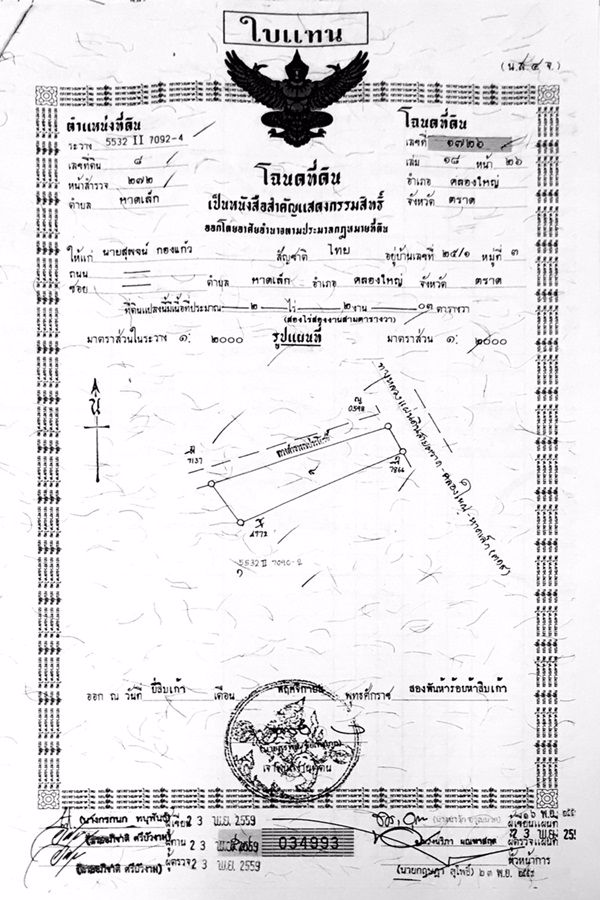 ใบแทน
(น.ส.๔ จ.)
ตำแหน่งที่ดิน
ระวาง 5532 II 7092-4
เลขที่ดิน ๘
หน้าสำรวจ ๒๗๒
ตำบล หาดเล็ก
โฉนดที่ดิน
เลขที่ ๑๗๒๖
เล่ม ๑๘ หน้า ๒๖
อำเภอ คลองใหญ่
จังหวัด ตราด
โฉนดที่ดิน
เป็นหนังสือสำคัญแสดงกรรมสิทธิ์
ออกโดยอาศัยอำนาจตามประมวลกฎหมายที่ดิน
ให้แก่ นายสุพจน์ กองแก้ว สัญชาติ ไทย อยู่บ้านเลขที่ ๒๕/๑ หมู่ที่ ๓
ถนน
ซอย ตำบล หาดเล็ก อำเภอ คลองใหญ่ จังหวัด ตราด
ที่ดินแปลงนี้มีเนื้อที่ประมาณ ๒ ไร่ ๒ งาน ๐๓ ตารางวา
(สองไร่สองงานสามตารางวา)
มาตราส่วนในระวาง ๑: ๒๐๐๐ รูปแผนที่ มาตราส่วน ๑: ๒๐๐๐
น
0598
7137
7866
4772
ทางหลวงแผ่นดินสายตราด - คลองใหญ่ - หาดเล็ก (๓๑๘)
5532 II 7090-2
ออก ณ วันที่ ยี่สิบเก้า เดือน พฤศจิกายน พุทธศักราช สองพันห้าร้อยห้าสิบเก้า
เจ้าพนักงานที่ดิน
ผู้เขียน 2 3 พ.ย. 2559
(นายอภิชาติ ศรีบัวงาม) ผู้ทาน 2 3 พ.ย. 2559
(นายอภิชาติ ศรีบัวงาม) ผู้ตรวจ 2 3 พ.ย. 2559
034993
ผู้เขียนแผนที่
ผู้ตรวจแผนที่
หัวหน้าการ